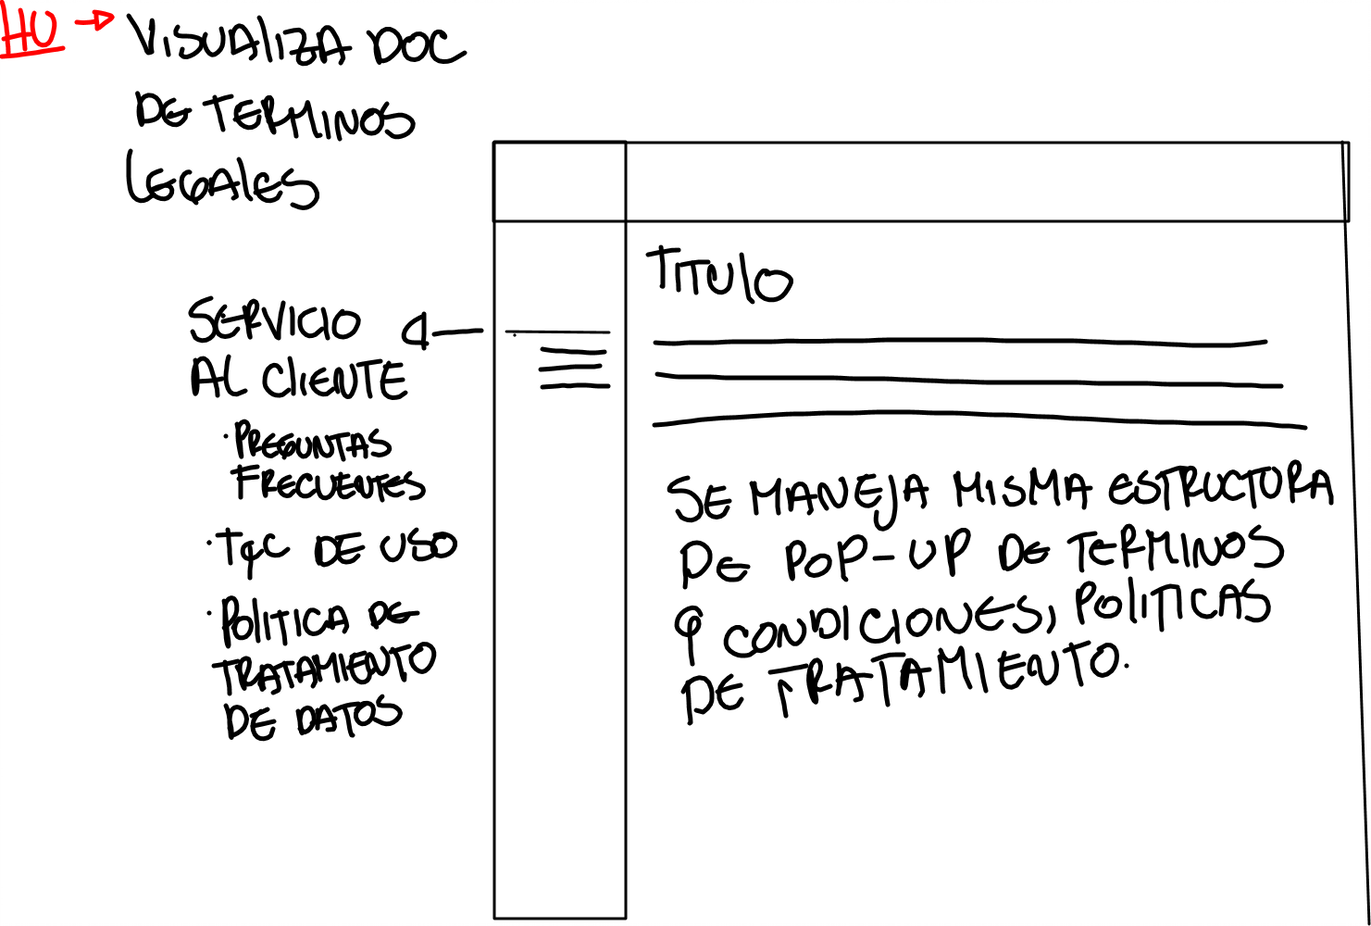 HU → VISUALIZA DOC
DE TERMINOS
LEGALES
SERVICIO
AL CLIENTE
· PREGUNTAS
FRECUENTES
· TyC DE USO
· POLITICA DE
TRATAMIENTO
DE DATOS
TITULO
SE MANEJA MISMA ESTRUCTURA
DE POP-UP DE TERMINOS
Y CONDICIONES, POLITICAS
DE TRATAMIENTO.